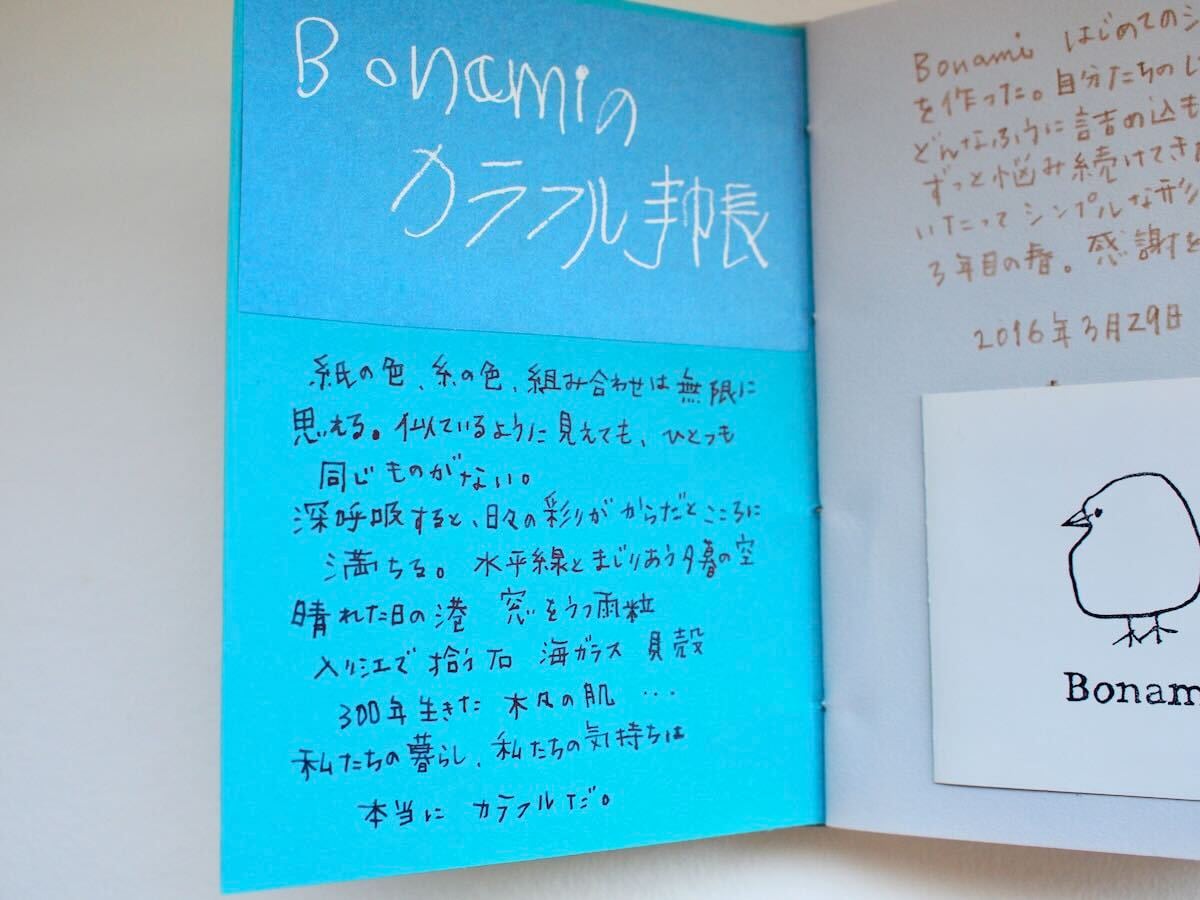 Bonamiの
カラフル手帳
紙の色、糸の色、組み合わせは無限に
思える。似ているように見えても、ひとつも
同じものがない。
深呼吸すると、日々の彩りがからだとこころに
満ちる。水平線とまじりあう夕暮の空
晴れた日の港 窓をうつ雨粒
入り江で拾う石 海ガラス 貝殻
300年生きた 木々の肌 …
私たちの暮らし、私たちの気持ちは
本当に カラフルだ。
Bonami はじめてのジ
を作った。自分たちの
どんなふうに詰め込も
ずっと悩み続けてき
いたって シンプルな形
3年目の春。感謝を
2016年3月29日
Bonam